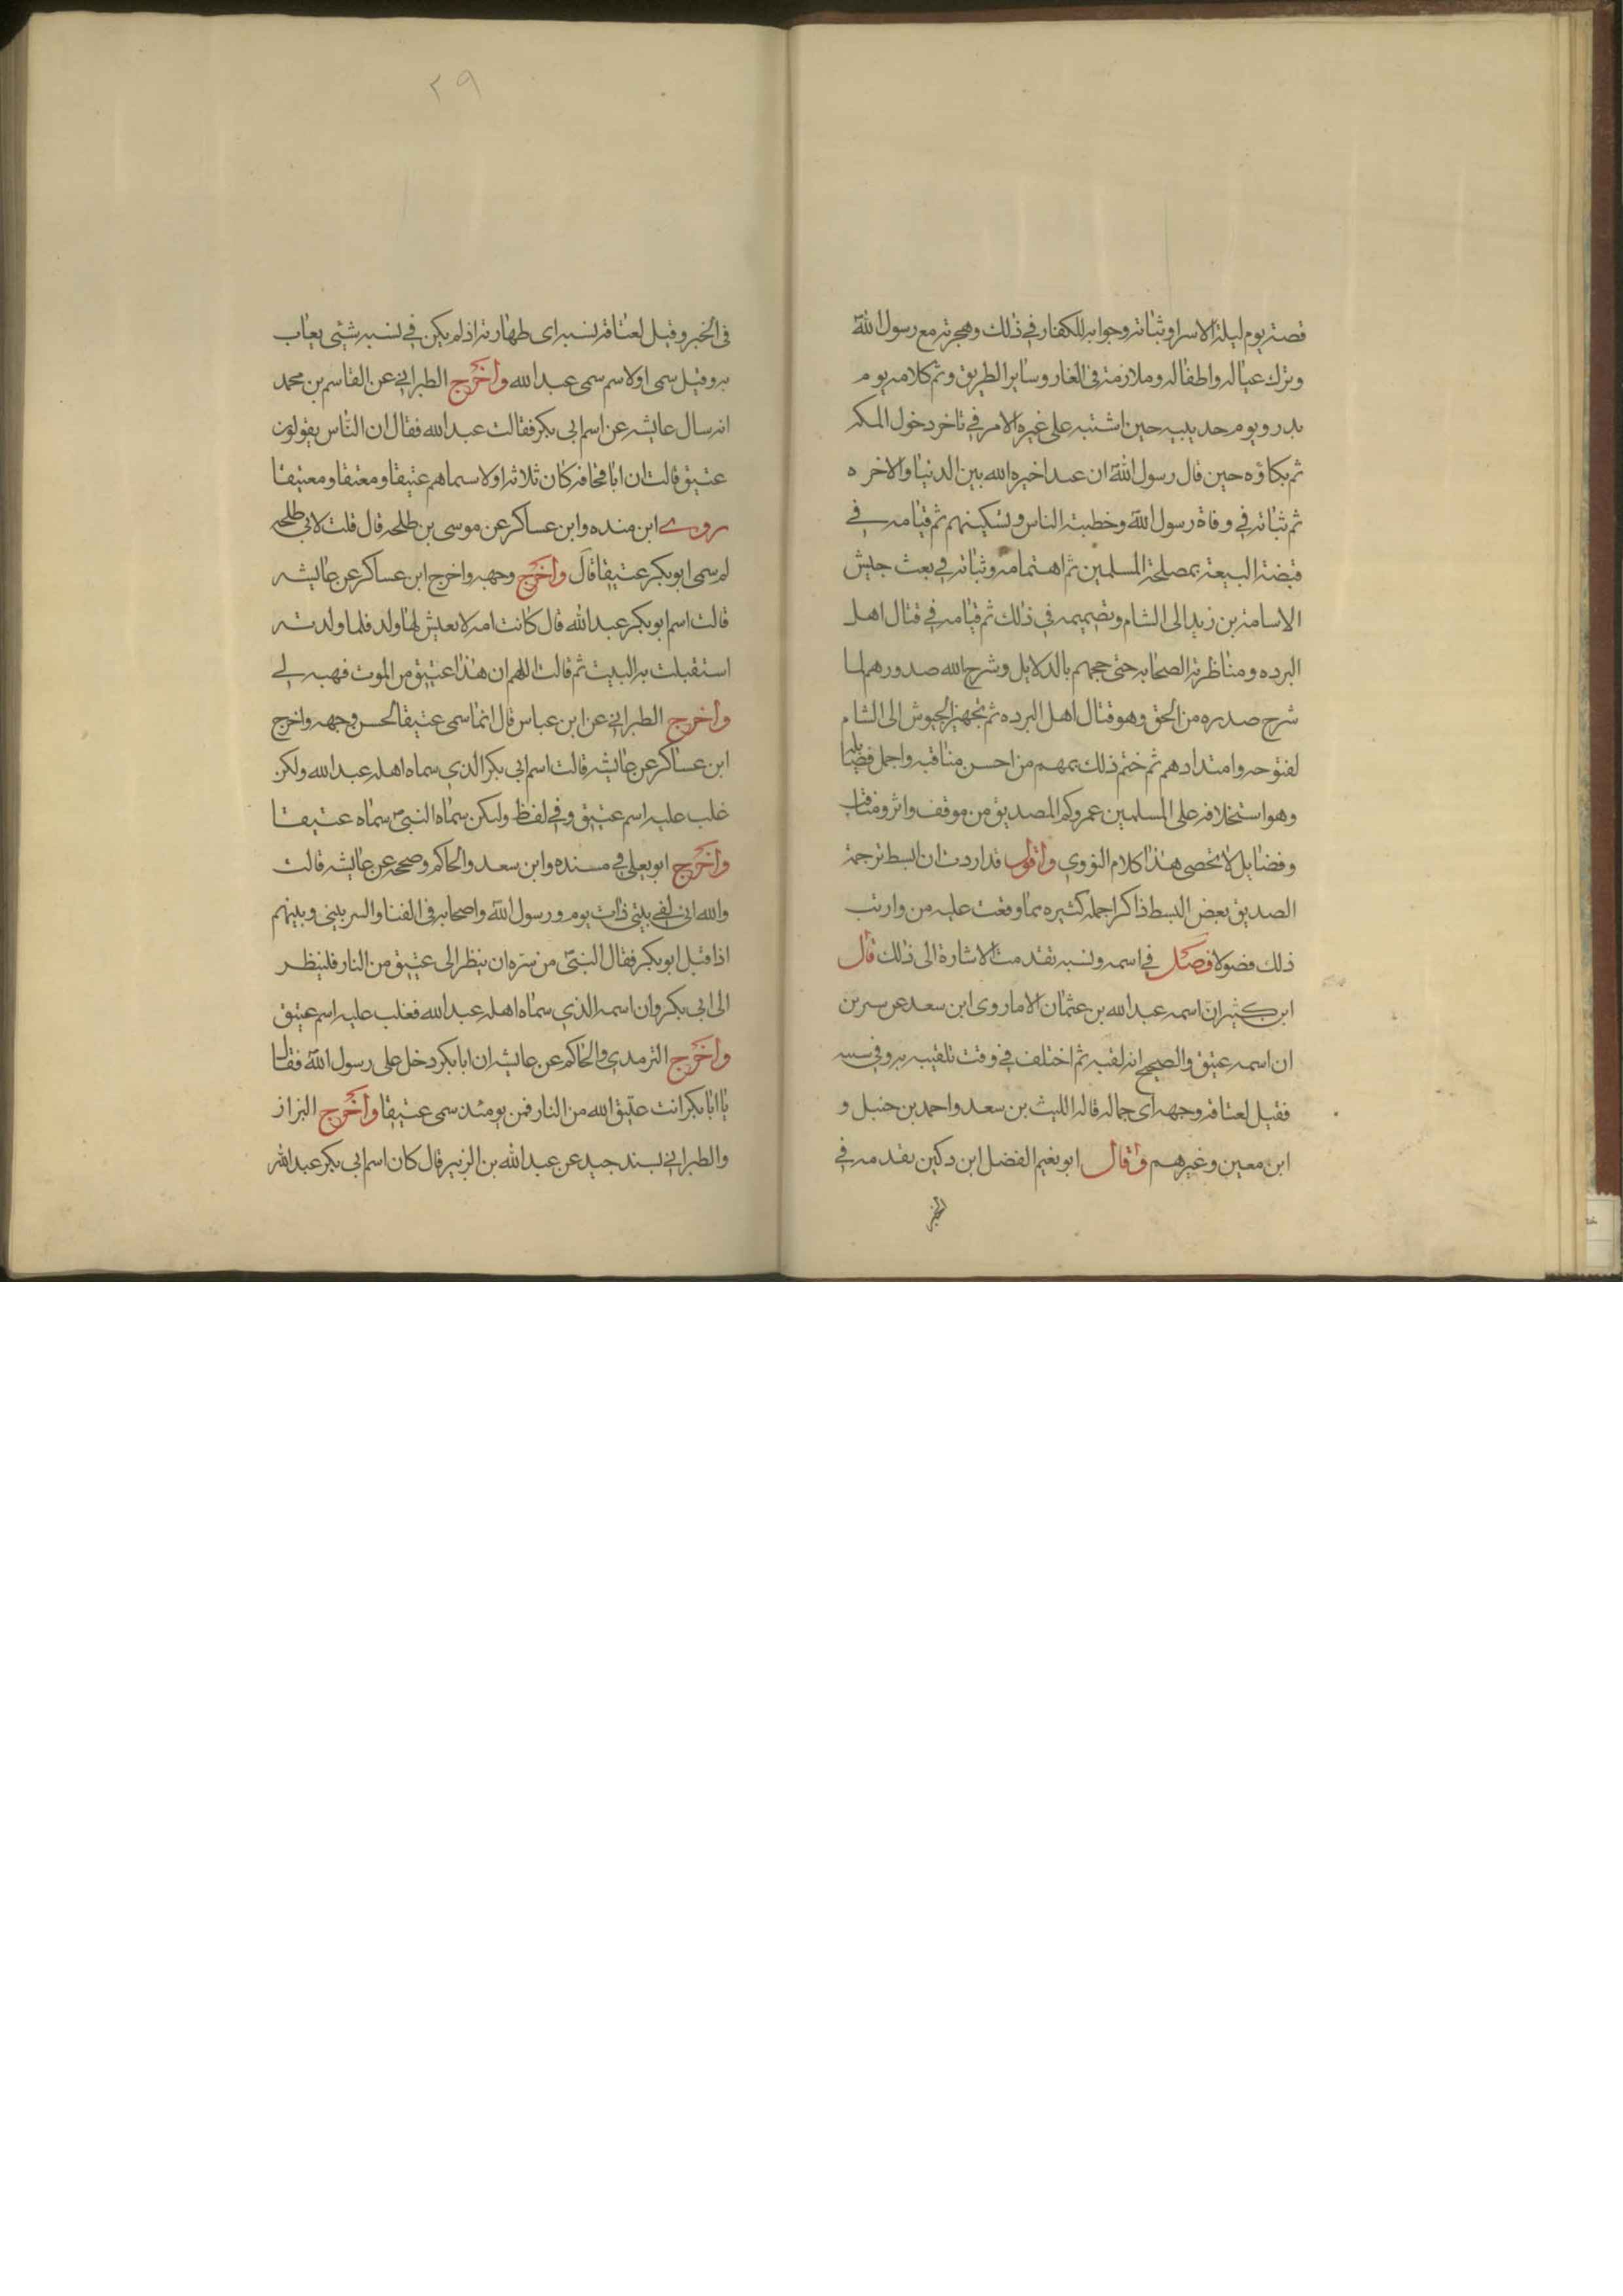 قصته يوم ليلة الاسرا وثباته وجوابه للكفار في ذلك وهجرته مع رسول الله
وترك عياله واطفاله وملازمته في الغار وساير الطريق وثم كلامه يوم
بدر ويوم حديبيه حين اشتبه على غيره الامر في تاخر دخول المكه
ثم بكاؤه حين قال رسول الله ان عبدا خيره الله بين الدنيا والاخره
ثم ثباته في وفاة رسول الله وخطبته الناس وتسكينهم ثم قيامه في
قبضة البيعة بمصلحة المسلمين ثم اهتمامه وثباته في بعث جيش
الاسامة بن زيد الى الشام وتصميمه في ذلك ثم قيامه في قتال اهل
البرده ومناظرته الصحابه حتى حجهم بالدلايل وشرح الله صدورهم لما
شرح صدره من الحق وهو قتال اهل البرده ثم تجهيز الجيوش الى الشام
لفتوحه وامتدادهم ثم ختم ذلك بمهم من احسن مناقبه واجل فضايله
وهو استخلافه على المسلمين عمر وكم للصديق من موقف واثر ومناقب
وفضايل لا تحصى هذا كلام النووي واقول قد اردت ان ابسط ترجمة
الصديق بعض البسط ذاكرا جمله كثيره مما وقعت عليه من وارتب
ذلك فصولا فصل في اسمه ونسبه تقدمت الاشارة الى ذلك قال
ابن كثير ان اسمه عبد الله بن عثمان الا ما روى ابن سعد عن سيرين
ان اسمه عتيق والصحيح انه لقبه ثم اختلف في وقت تلقيبه به وفي سببه
فقيل لعتاقة وجهه اى جماله قاله الليث بن سعد واحمد بن حنبل و
ابن معين وغيرهم وقال ابو نعيم الفضل ابن دكين لقدمه في
الخير
٢٩
في الخير وقيل لعتاقة نسبه اى طهارته اذ لم يكن في نسبه شئى يعاب
به وقيل سمى اولا سم سمى عبد الله واخرج الطبراني عن القاسم بن محمد
انه سال عايشه عن اسم ابي بكر فقالت عبد الله فقال ان الناس يقولون
عتيق قالت ان ابا قحافه كان ثلاثه اولاد سماهم عتيقا ومعتقا ومعتيقا
روى ابن منده وابن عساكر عن موسى بن طلحه قال قلت لابي طلحه
لم سمى ابو بكر عتيقا قال واخرج وجهه واخرج ابن عساكر عن عايشه
قالت اسم ابو بكر عبد الله قال كانت امه لا يعيش لها ولد فلما ولدته
استقبلت به البيت ثم قالت اللهم ان هذا عتيق من الموت فهبه لي
واخرج الطبراني عن ابن عباس قال انما سمى عتيقا لحسن وجهه واخرج
ابن عساكر عن عايشه قالت اسم ابي بكر الذي سماه اهله عبد الله ولكن
غلب عليه اسم عتيق وفي لفظ ولكن سماه النبي سماه عتيقا
واخرج ابو يعلي في مسنده وابن سعد والحاكم وصححه عن عايشه قالت
والله اني لفي بيتي ذات يوم ورسول الله واصحابه في الفنا والستر بيني وبينهم
اذ اقبل ابو بكر فقال النبي من سره ان ينظر الى عتيق من النار فلينظر
الى ابي بكر وان اسمه الذي سماه اهله عبد الله فغلب عليه اسم عتيق
واخرج الترمدي والحاكم عن عايشه ان ابا بكر دخل على رسول الله فقال
يا ابا بكر انت عتيق الله من النار فمن يومئد سمى عتيقا واخرج البزاز
والطبراني بسند جيد عن عبد الله بن الزبير قال كان اسم ابي بكر عبد الله